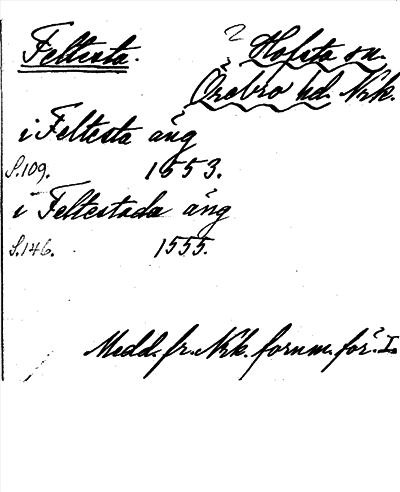 Feltesta. ? Hofsta sn.
Örebro hd. Nrk.
i Feltesta äng
S. 109. 1553.
i Feltestada äng
S. 146. 1555.
Medd. fr. Nrk. fornm. för. I.